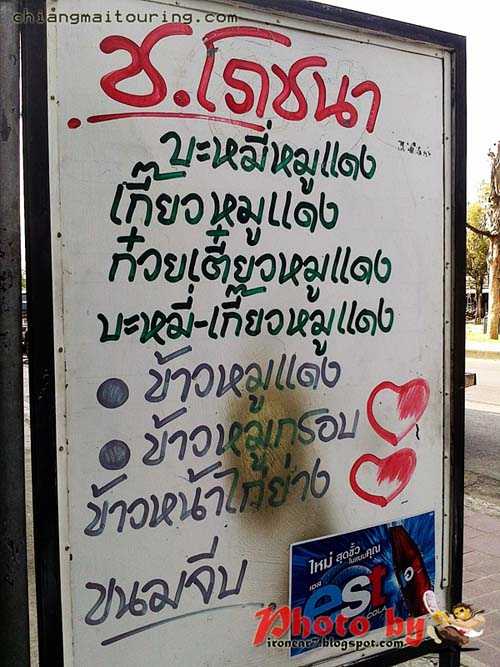 chiangmaitouring.com
ช.โภชนา
บะหมี่หมูแดง
เกี๊ยวหมูแดง
ก๋วยเตี๋ยวหมูแดง
บะหมี่-เกี๊ยวหมูแดง
ข้าวหมูแดง
ข้าวหมูกรอบ
ข้าวหน้าไก่ย่าง
ขนมจีบ
ใหม่ สุดขั้ว
ในแบบคุณ
เอส
est
COLA
Photo by
ironenr7.blogspot.com